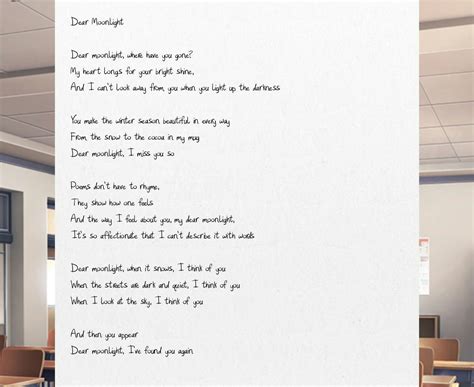 Dear Moonlight
Dear moonlight, where have you gone?
My heart longs for your bright shine,
And I can't look away from, you when you light up the darkness
You make the winter season beautiful in every way
From the snow to the cocoa in my mug
Dear moonlight, I miss you so
Poems don't have to rhyme,
They show how one feels
And the way I feel about you, my dear moonlight,
It's so affectionate that I can't describe it with words
Dear moonlight, when it snows, I think of you
When the streets are dark and quiet, I think of you
When I look at the sky, I think of you
And then you appear
Dear moonlight, I've found you again